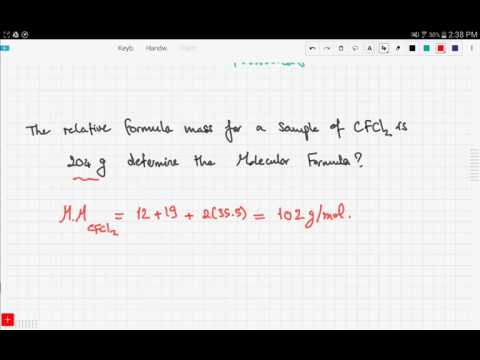 30% 2:38 PM
Keyb. Handw.
The relative formula mass for a sample of CFCl2 is
204 g determine the Molecular Formula?
M.M CFCl2 = 12 + 19 + 2(35.5) = 102 g/mol.